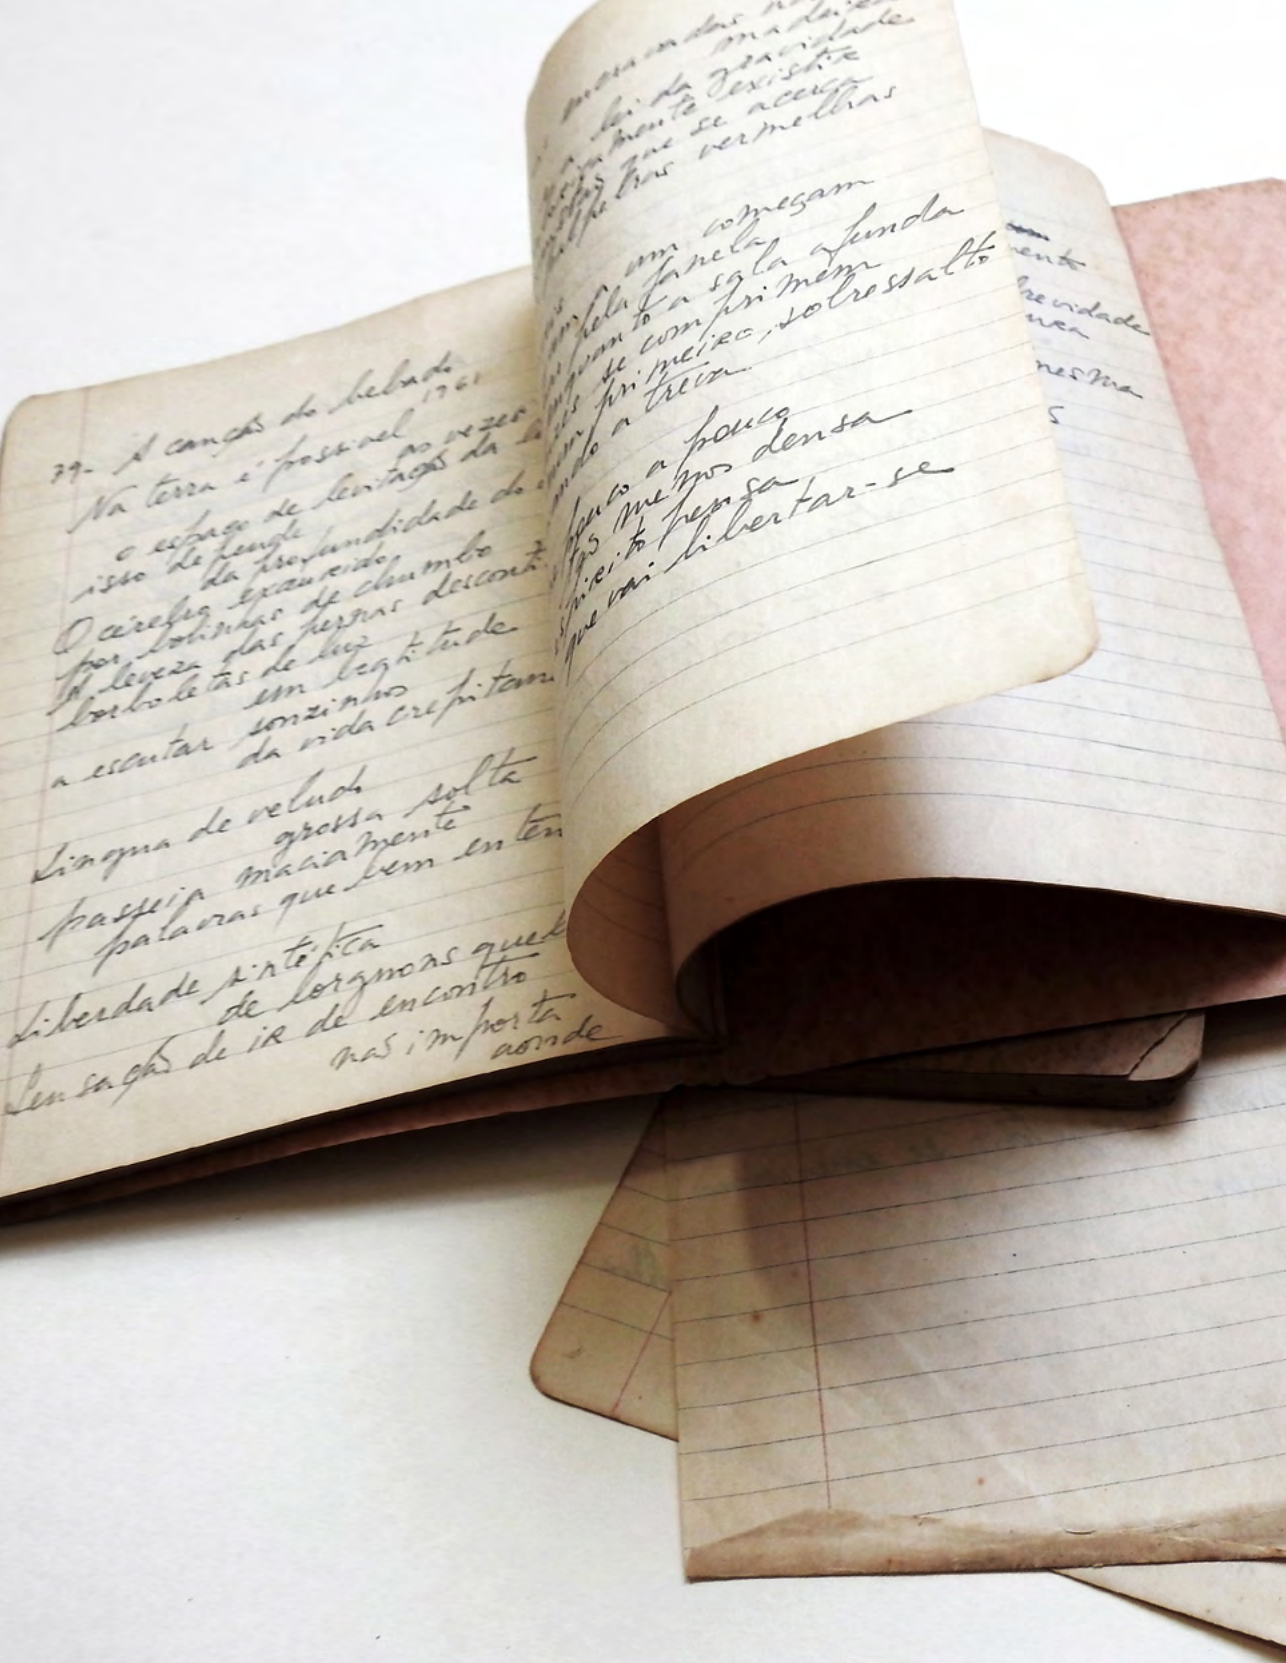 79- A canção do bebado
1961
Na terra é possivel
as vezes
o espaço de levitação da
isso depende
da profundidade do
O cérebro exaurido
por bolinhas de chumbo
A leveza das pernas descont
borboletas de luz
em beatitude
a escutar sonzinhos
da vida crepitan
Lingua de veludo
grossa solta
passeia maciamente
palavras que bem enten
Liberdade sintética
de lorgnons queb
Sensação de ir de encontro
não importa
aonde
madeira
a lei da gravidade
mente existir
que se acerca
vermelhas
um começam
pela janela
enquanto a sala afunda
se comprimem
primeiro, sobressalto
a treva
pouco a pouco
menos densa
pensa
que vai libertar-se
mento
brevidade
nunca
mesma
s